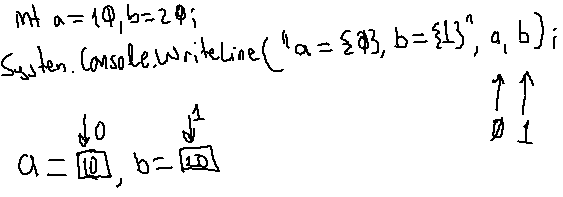 int a=10,b=20;
System.Console.WriteLine("a={0}, b={1}", a, b);
0 1
0 1
a=10, b=10